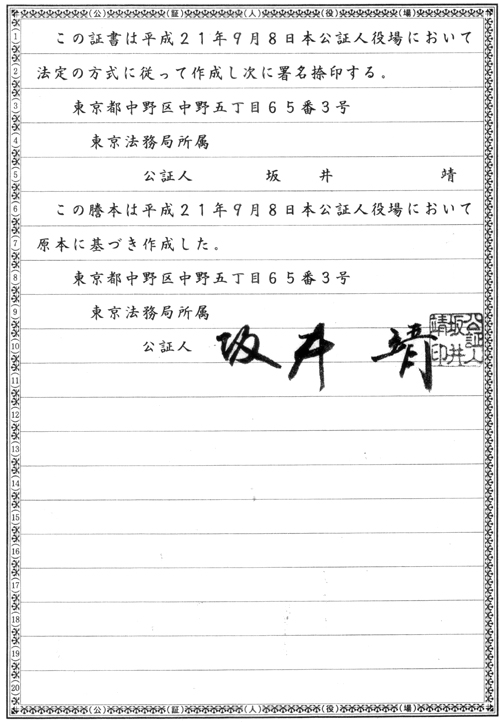 (公) (証) (人) (役) (場)
1 この証書は平成21年9月8日本公証人役場において
2 法定の方式に従って作成し次に署名捺印する。
3 東京都中野区中野五丁目65番3号
4 東京法務局所属
5 公証人 坂井 靖
6 この謄本は平成21年9月8日本公証人役場において
7 原本に基づき作成した。
8 東京都中野区中野五丁目65番3号
9 東京法務局所属
10 公証人 坂井 靖
公証人坂井靖印
11
12
13
14
15
16
17
18
19
20
(公) (証) (人) (役) (場)